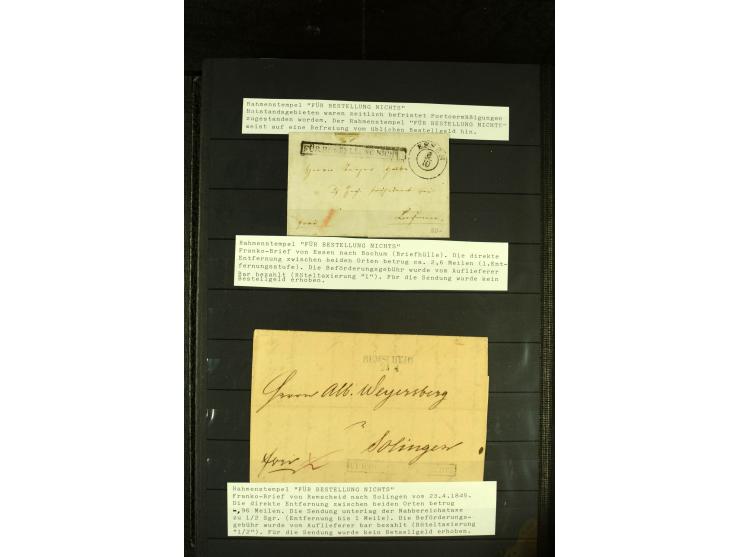 Rahmenstempel "FÜR BESTELLUNG NICHTS"
Notstandsgebieten waren zeitlich befristet Portoermäßigungen
zugestanden worden. Der Rahmenstempel "FÜR BESTELLUNG NICHTS"
weist auf eine Befreiung vom üblichen Bestellgeld hin.
FÜR BESTELLUNG NICHTS
ESSEN
Herrn
Rahmenstempel "FÜR BESTELLUNG NICHTS"
Franko-Brief von Essen nach Bochum (Briefhülle). Die direkte
Entfernung zwischen beiden Orten betrug ca. 2,6 Meilen (1.Ent-
fernungsstufe). Die Beförderungsgebühr wurde vom Auflieferer
bar bezahlt (Röteltaxierung "1"). Für die Sendung wurde kein
Bestellgeld erhoben.
REMSCHEID
Herrn Alb. Weyersberg
Solingen
Rahmenstempel "FÜR BESTELLUNG NICHTS"
Franko-Brief von Remscheid nach Solingen vom 23.4.1849.
Die direkte Entfernung zwischen beiden Orten betrug
-,96 Meilen. Die Sendung unterlag der Nahbereichstaxe
zu 1/2 Sgr. (Entfernung bis 1 Meile). Die Beförderungs-
gebühr wurde vom Auflieferer bar bezahlt (Röteltaxierung
"1/2"). Für die Sendung wurde kein Betsellgeld erhoben.